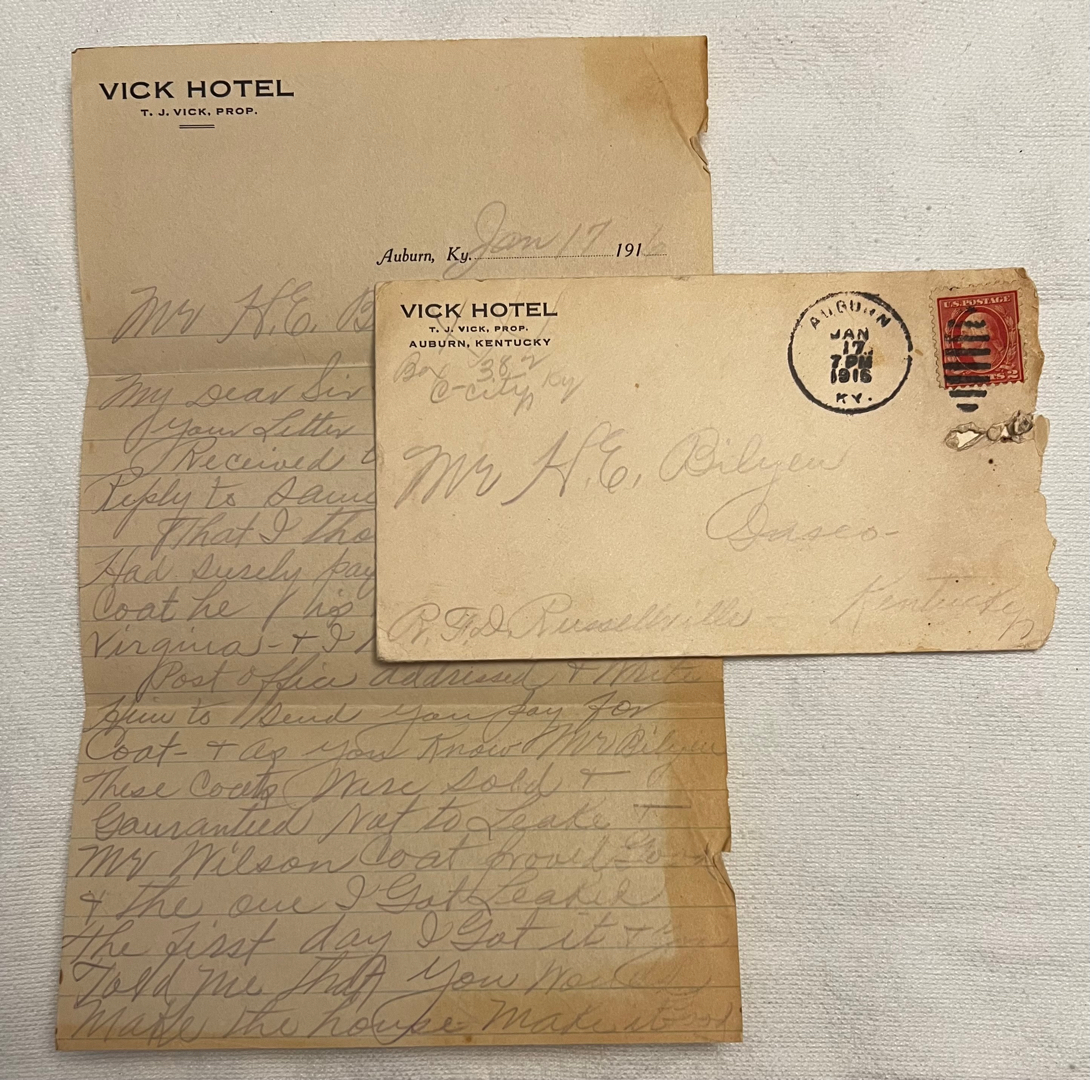 VICK HOTEL
T. J. VICK, PROP.
Auburn, Ky. Jan 17 1916
Mr H.E. B
My Dear Sir
your Letter
Received
Reply to Same
That I tho
Had surely pay
Coat he his
Virginia - & I
Post office addressed & Write
Him to Send you pay for
Coat - & as you Know Mr Bilyeu
These Coats Were sold &
Gaurantied Not to Leake &
Mr Wilson Coat proved Good
& the one I Got Leaked
the first day I Got it &
Told me that you Would
Make the house Make it Good
VICK HOTEL
T. J. VICK, PROP.
AUBURN, KENTUCKY
Box 382
C-City Ky
AUBURN
JAN
17
7 PM
1916
KY.
U.S. POSTAGE
Mr H.E. Bilyeu
Kentucky
R.F.D. Russellville